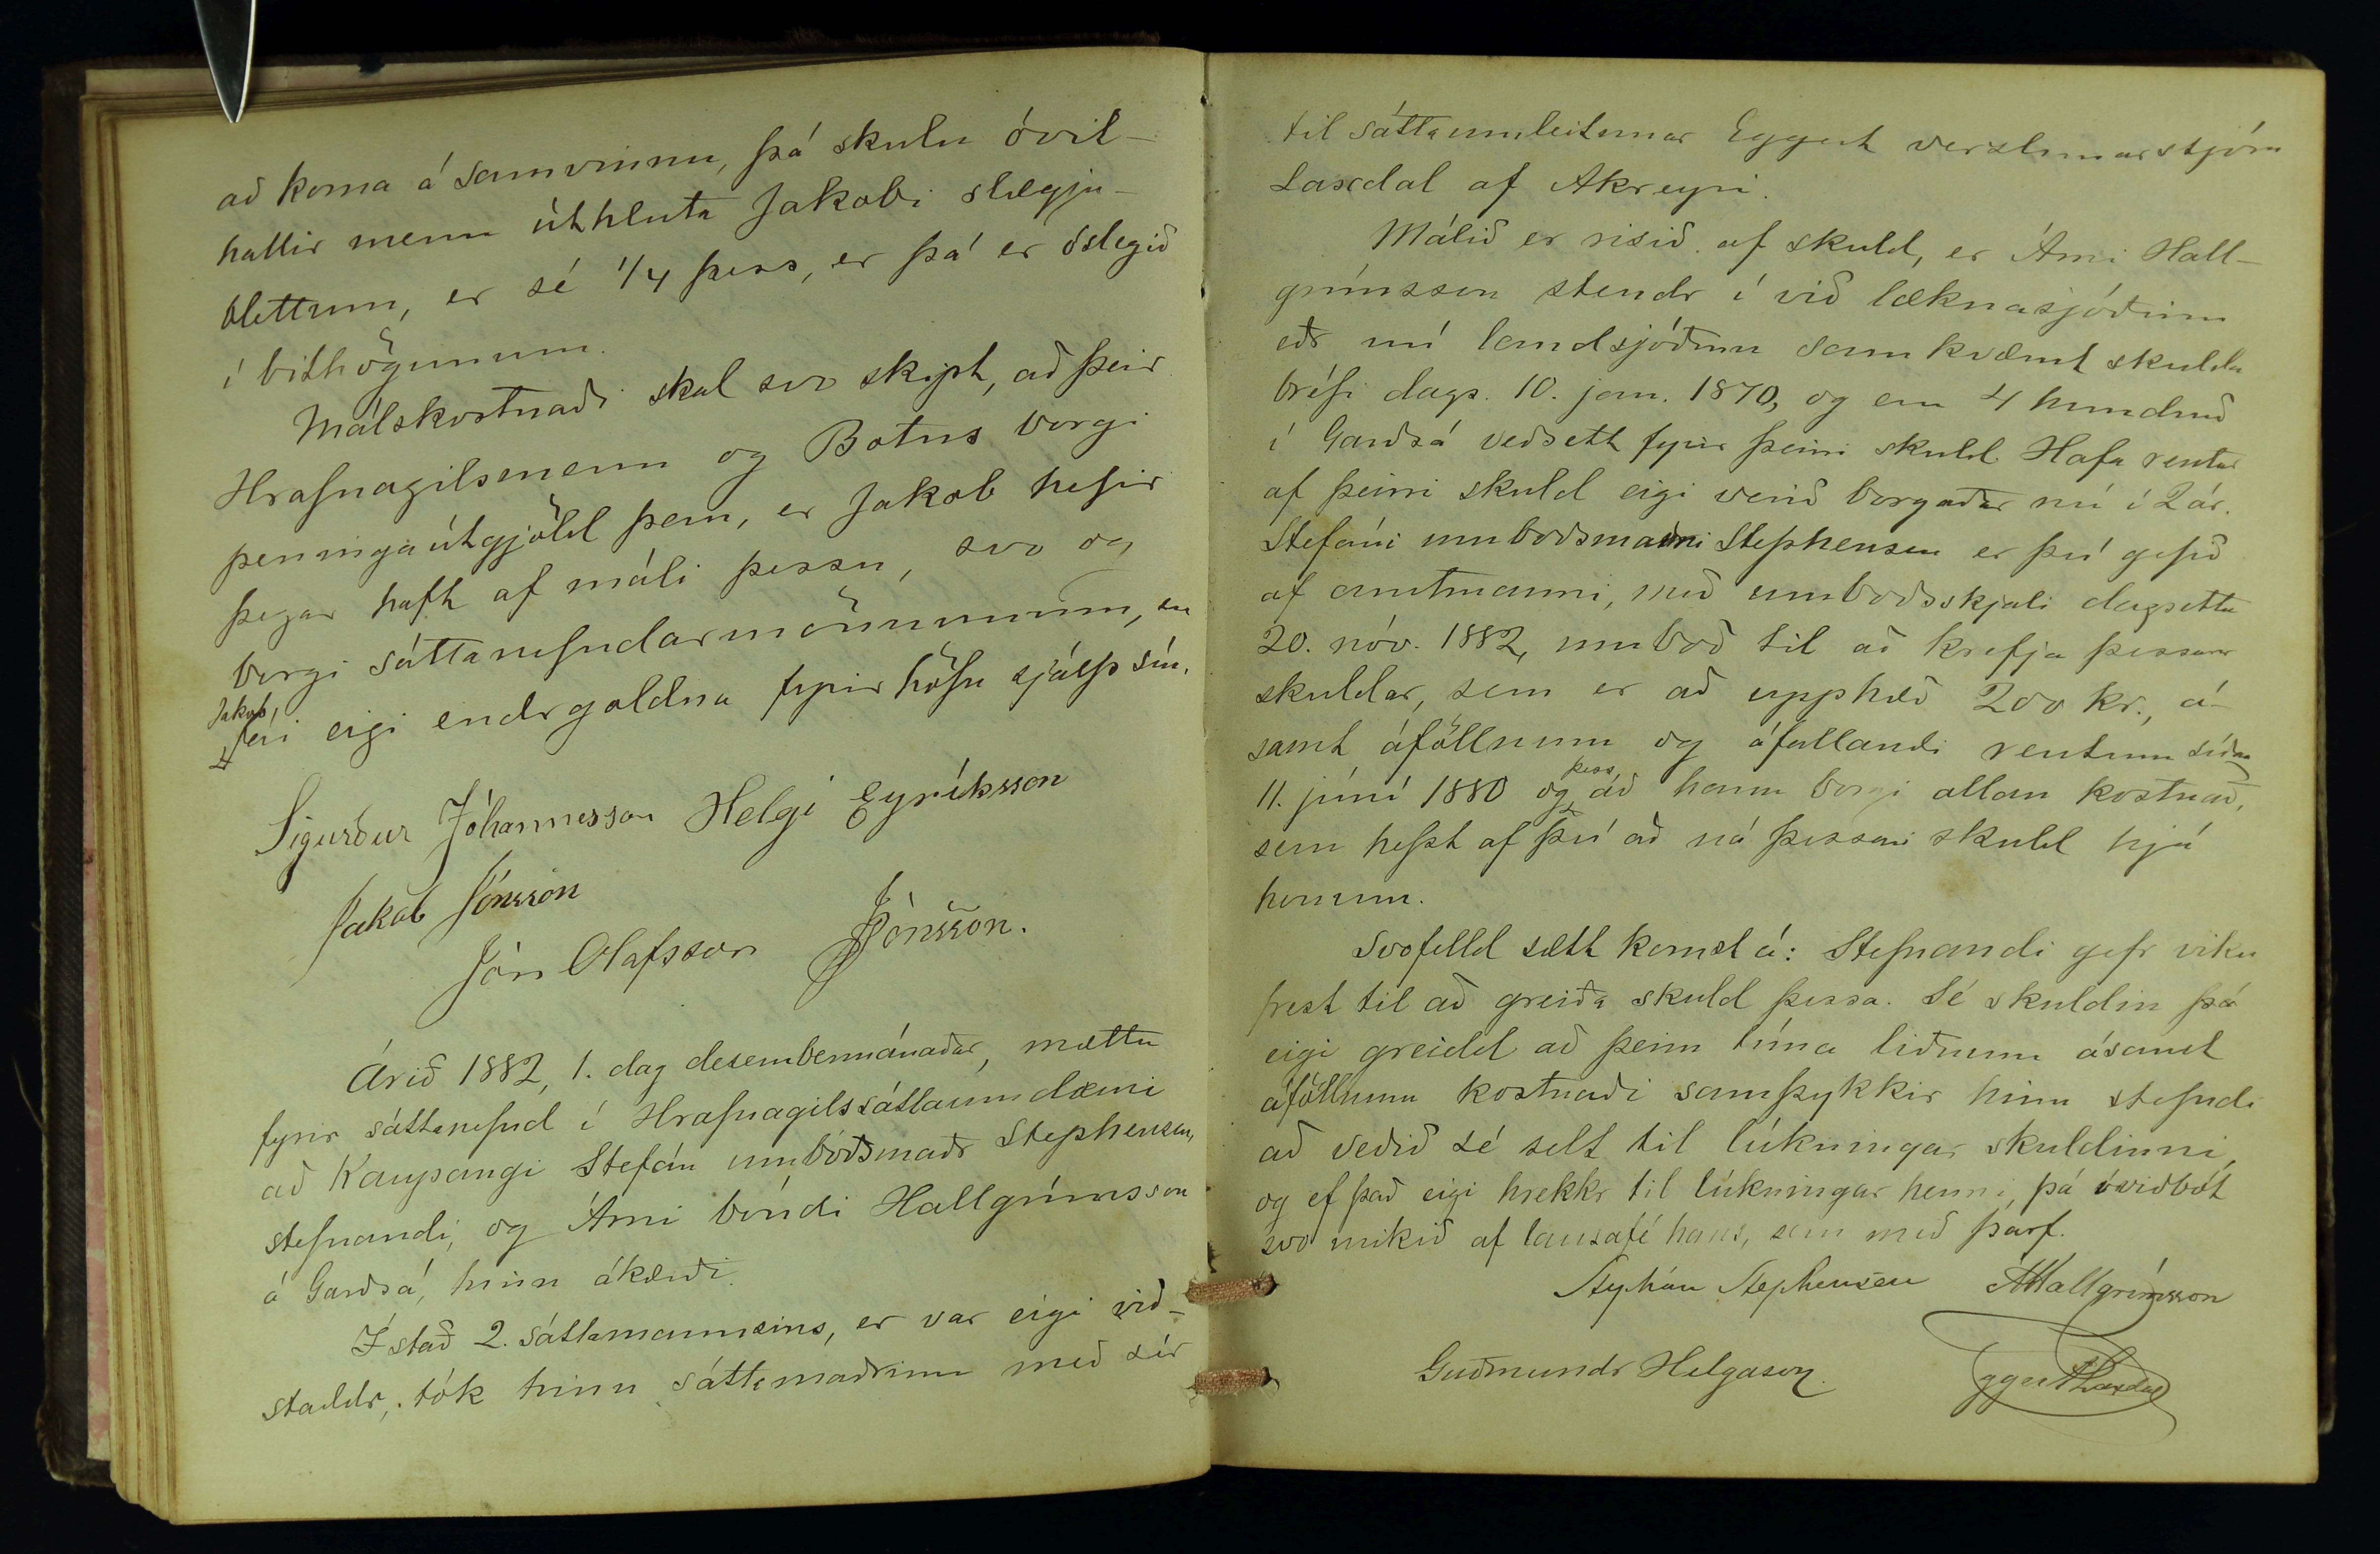 að koma á samvinnu, þá skulu óvil-
hallir menn úthluta Jakobi slægju-
blettum, er sé 1/4 þess, er þá er óslegið
í bithögunum.
Málskostnaði skal svo skipt, að þeir
Hrafnagilsmenn og Botns borgi
peningaútgjöld þem, er Jakob hefir
þegar haft af máli þessu, svo og
borgi sáttanefndarmönnunum, en
Jakob
fái eigi endrgoldna fyrirhöfn sjálfs sín.
Sigurður Jóhannesson Helgi Eyríksson
Jakob Jónsson
Jón Olafsson J Jónsson.
Árið 1882, 1. dag desembermánaðar, mættu
fyrir sáttanefnd í Hrafnagilssáttaumdæmi
að Kaupangi Stefán umboðsmaðr Stephensen,
stefnandi, og Árni bóndi Hallgrímsson
á Garðsá, hinn ákærði.
Í stað 2. sáttamannsins, er var eigi við-
staddr, tók hinn sáttamaðrinn með sér
til sáttaumleitunar Eggert verzlunarstjóra
Laxdal af Akreyri.
Málið er risið af skuld, er Árni Hall-
grímsson stendr í við læknasjóðinn
eðr nú landsjóðinn samkvæmt skulda
bréfi dags. 10. jan. 1870, og eru 4 hundruð
í Garðsá veðsett fyrir þeirri skuld. Hafa rentur
af þeirri skuld eigi verið borgaðar nú í 2 ár.
Stefáni umboðsmanni Stephensen er því gefið
af amtmanni, með umboðsskjali dagsettu
20. nóv. 1882, umboð til að krefja þessarar
skuldar, sem er að upphæð 200 kr., á-
samt áföllnum og áfallandi rentum síðan
11. júní 1880 og þess að hann borgi allan kostnað,
sem hefst af því að ná þessari skuld hjá
honum.
Svofelld sætt komst á: Stefnandi gefr viku
frest til að greiða skuld þessa. Sé skuldin þá
eigi greidd að þeim tíma liðnum ásamt
áföllnum kostnaði samþykkir hinn stefndi
að veðið sé selt til lúkningar skuldinni,
og ef það eigi hrekkr til lúkningar henni, þá í viðbót
svo mikið af lausafé hans, sem með þarf.
Stephán Stephensen ÁHallgrímsson
Guðmundr Helgason. Eggert Laxdal